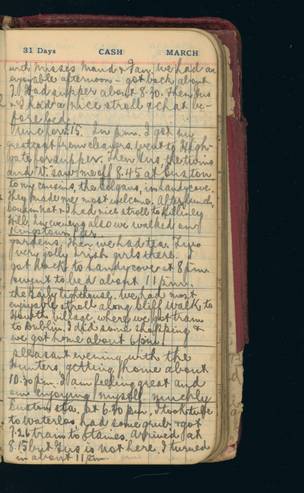 31 Days CASH MARCH
with Misses Maud & Fan, we had an
enjoyable afternoon - got back about
7. Had supper about 8.30. Then Gus
& I had a nice stroll & chat be-
fore bed.
In p.m. I got my
from cleaners went to High-
gate for supper. Then Gus,
and saw me off 8.45 at Euston
to my cousins, the in Landycove.
They made me most welcome. After lunch,
I had nice stroll to Killiney
Hill. In evening also we walked on
Kingstown Pier.
gardens. Then we had tea. Two
very jolly Irish girls there. I
got back to Landycove at 8 p.m.
& went to bed about 11 p.m.
the Baily lighthouse. We had most
enjoyable stroll along cliff walk, to
Howth Village, where we got tram
to Dublin. I did some shopping &
we got home about 6 p.m.
pleasant evening with the
Hunters getting home about
10.30 p.m. I am feeling great and
am enjoying myself muchly
Euston sta. at 6.30 p.m. I took tube
to Waterloo had some grub & got
7.26 train to Staines. Arrived at
8.15 but Gus is not here. I turned
in about 11 p.m.